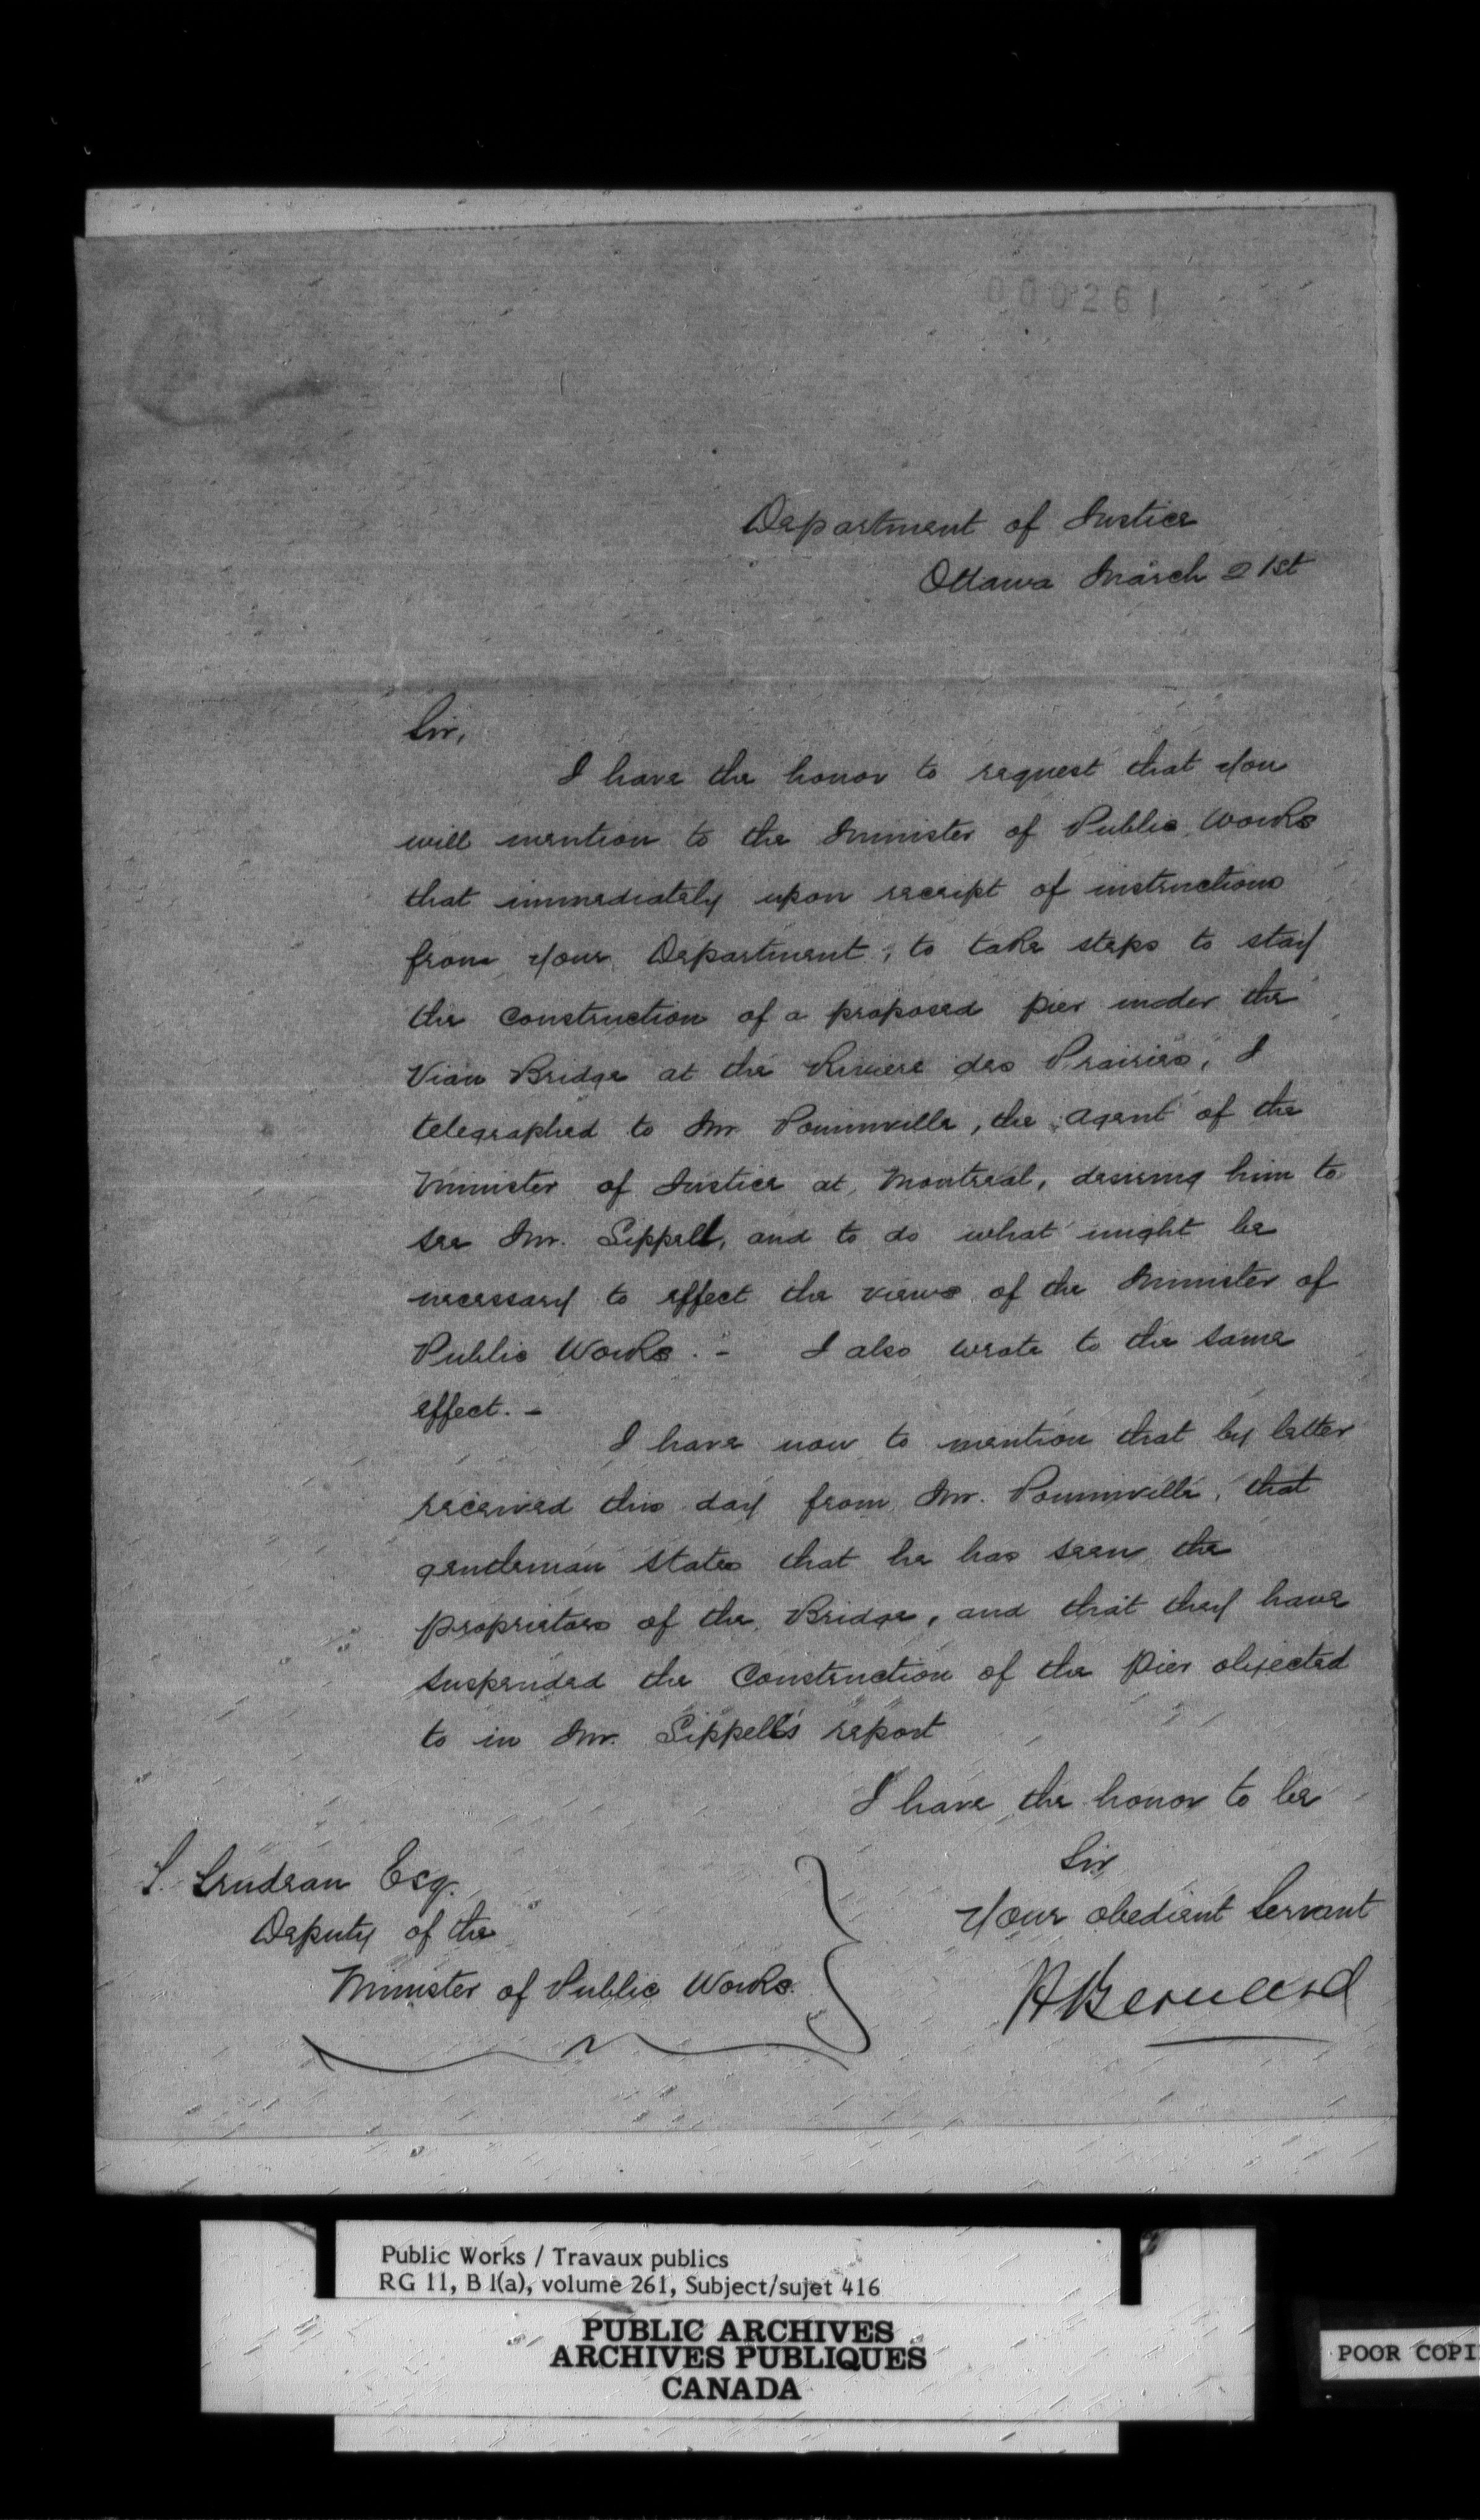 000261
Department of Justice
Ottawa March 21st
Sir,
I have the honor to request that you
will mention to the Minister of Public Works
that immediately upon receipt of instructions
from your Department, to take steps to stay
the construction of a proposed pier under the
Vian Bridge at the Riviere des Prairies, I
telegraphed to Mr. Pominville, the Agent of the
Minister of Justice at Montreal, desiring him to
see Mr. Sippell, and to do what might be
necessary to effect the views of the Minister of
Public Works. - I also wrote to the same
effect. -
I have now to mention that by letter
received this day from Mr. Pominville, that
gentleman states that he has seen the
proprietors of the Bridge, and that they have
suspended the Construction of the Pier objected
to in Mr. Sippell's report
I have the honor to be
Sir
Your obedient Servant
H Bernard
Esq.
Deputy of the
Minister of Public Works.
Public Works / Travaux publics
RG 11, B 1(a), volume 261, Subject/sujet 416
PUBLIC ARCHIVES
ARCHIVES PUBLIQUES
CANADA
POOR COPI